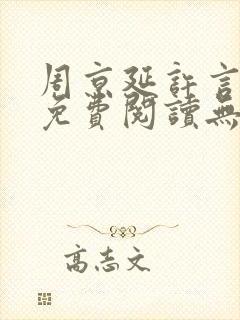 周京延許言
免費閱讀無
高志文